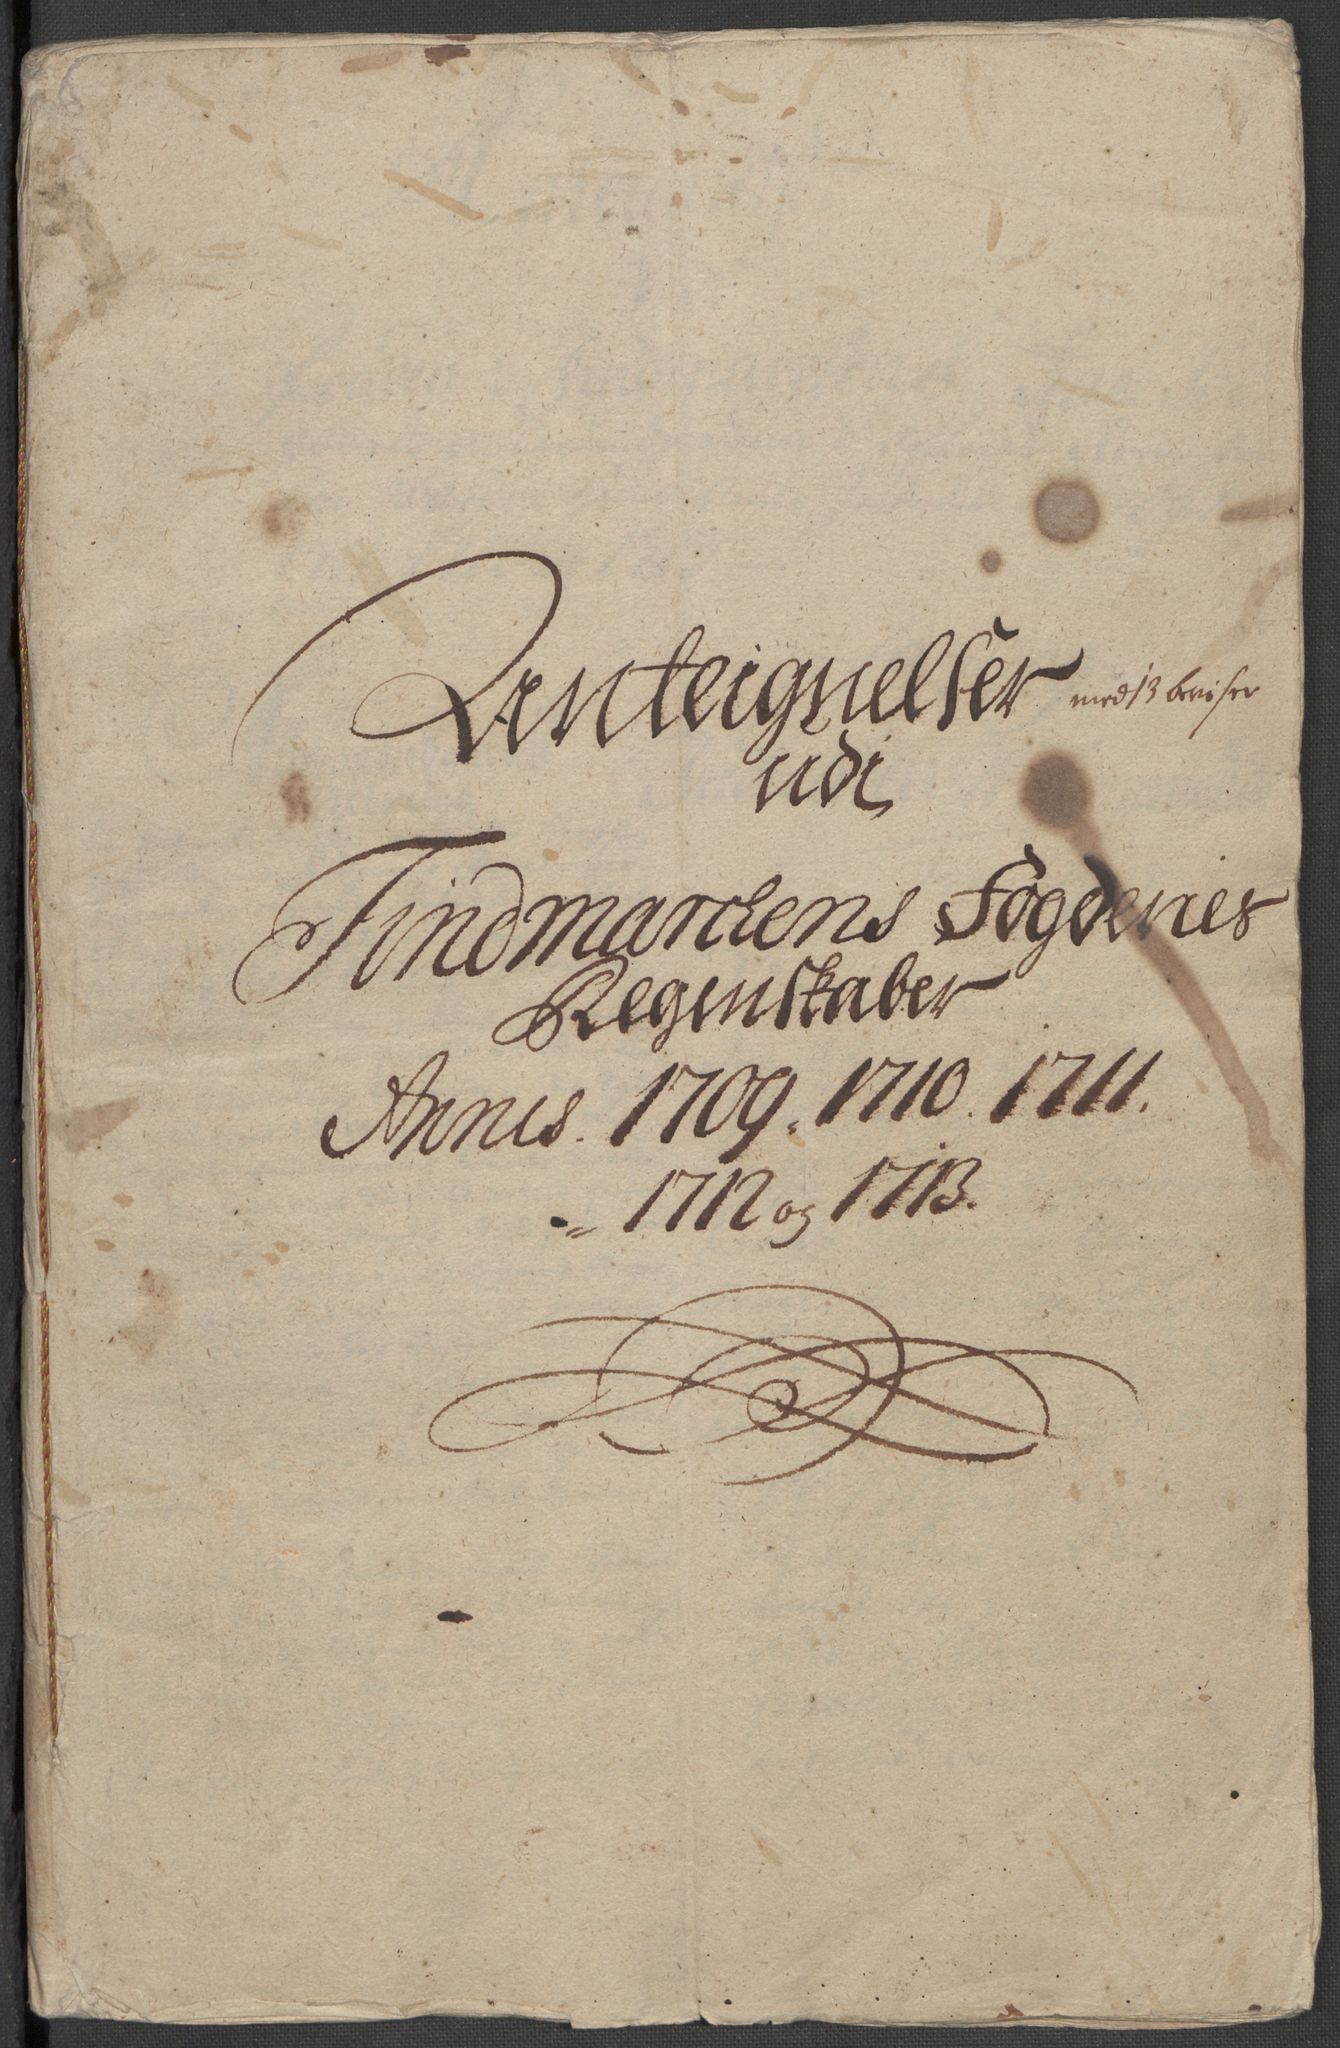 Anteignelser med 13 beviser
udi
Findmarckens Fogderies
Regenskaber
Annis. 1709. 1710. 1711.
1712 og 1713.